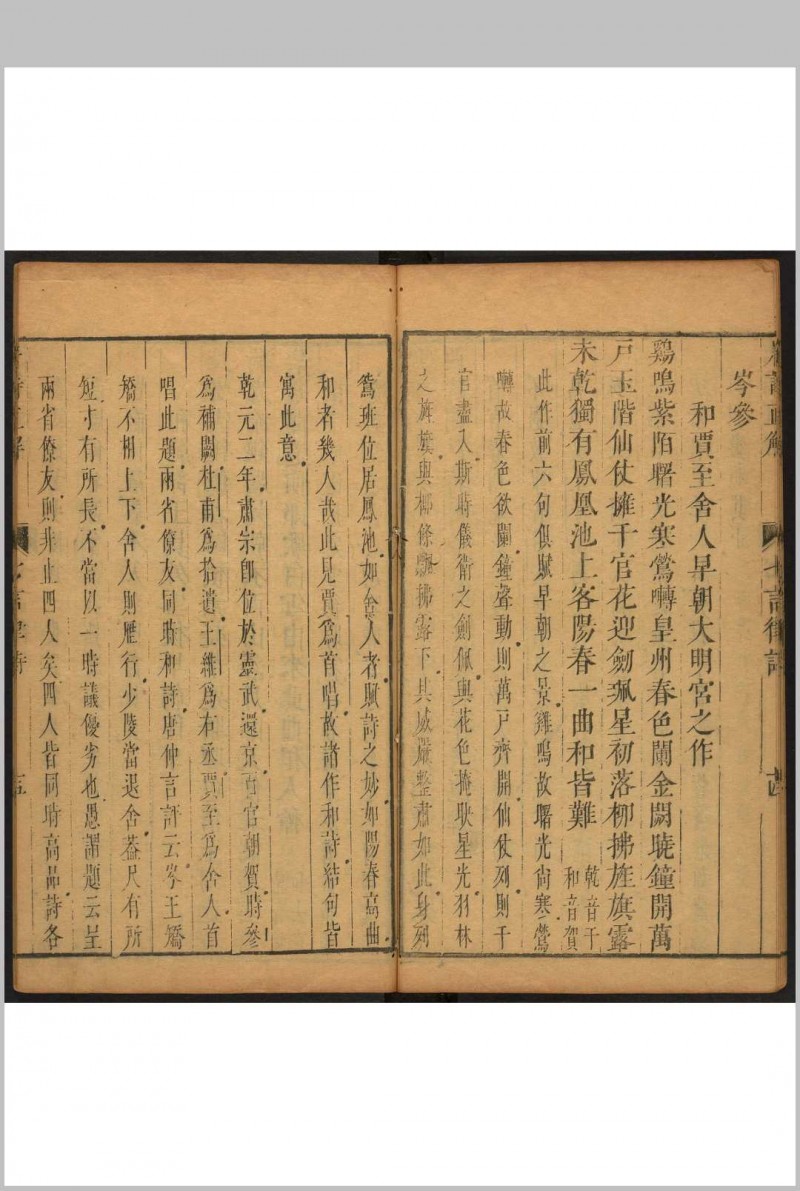 岑參
和賈至舍人早朝大明宮之作
鷄鳴紫陌曙光寒鶯囀皇州春色闌金闕曉鐘開萬
戶玉階仙仗擁千官花迎劒珮星初落柳拂旌旗露
未乾獨有鳳凰池上客陽春一曲和皆難
乾音干
和音賀
此作前六句俱賦早朝之景雞鳴故曙光尚寒鶯
囀故春色欲闌鐘聲動則萬戶齊開仙仗列則千
官盡入斯時儀衛之劍佩與花色掩映星光羽林
之旌旗與柳條飄拂露下其威嚴整肅如此身列
鴛班位居鳳池如舍人者賦詩之妙如陽春高曲
和者幾人哉此見賈爲首唱故諸作和詩結句皆
寓此意
乾元二年肅宗卽位於靈武還京百官朝賀時參
爲補闕杜甫爲拾遺王維爲右丞賈至爲舍人首
唱此題兩省僚友同時和詩唐仲言評云岑王矯
矯不相上下舍人則雁行少陵當退舍蓋尺有所
短寸有所長不當以一時議優劣也愚謂題云呈
兩省僚友則非止四人矣四人皆同時高品詩各